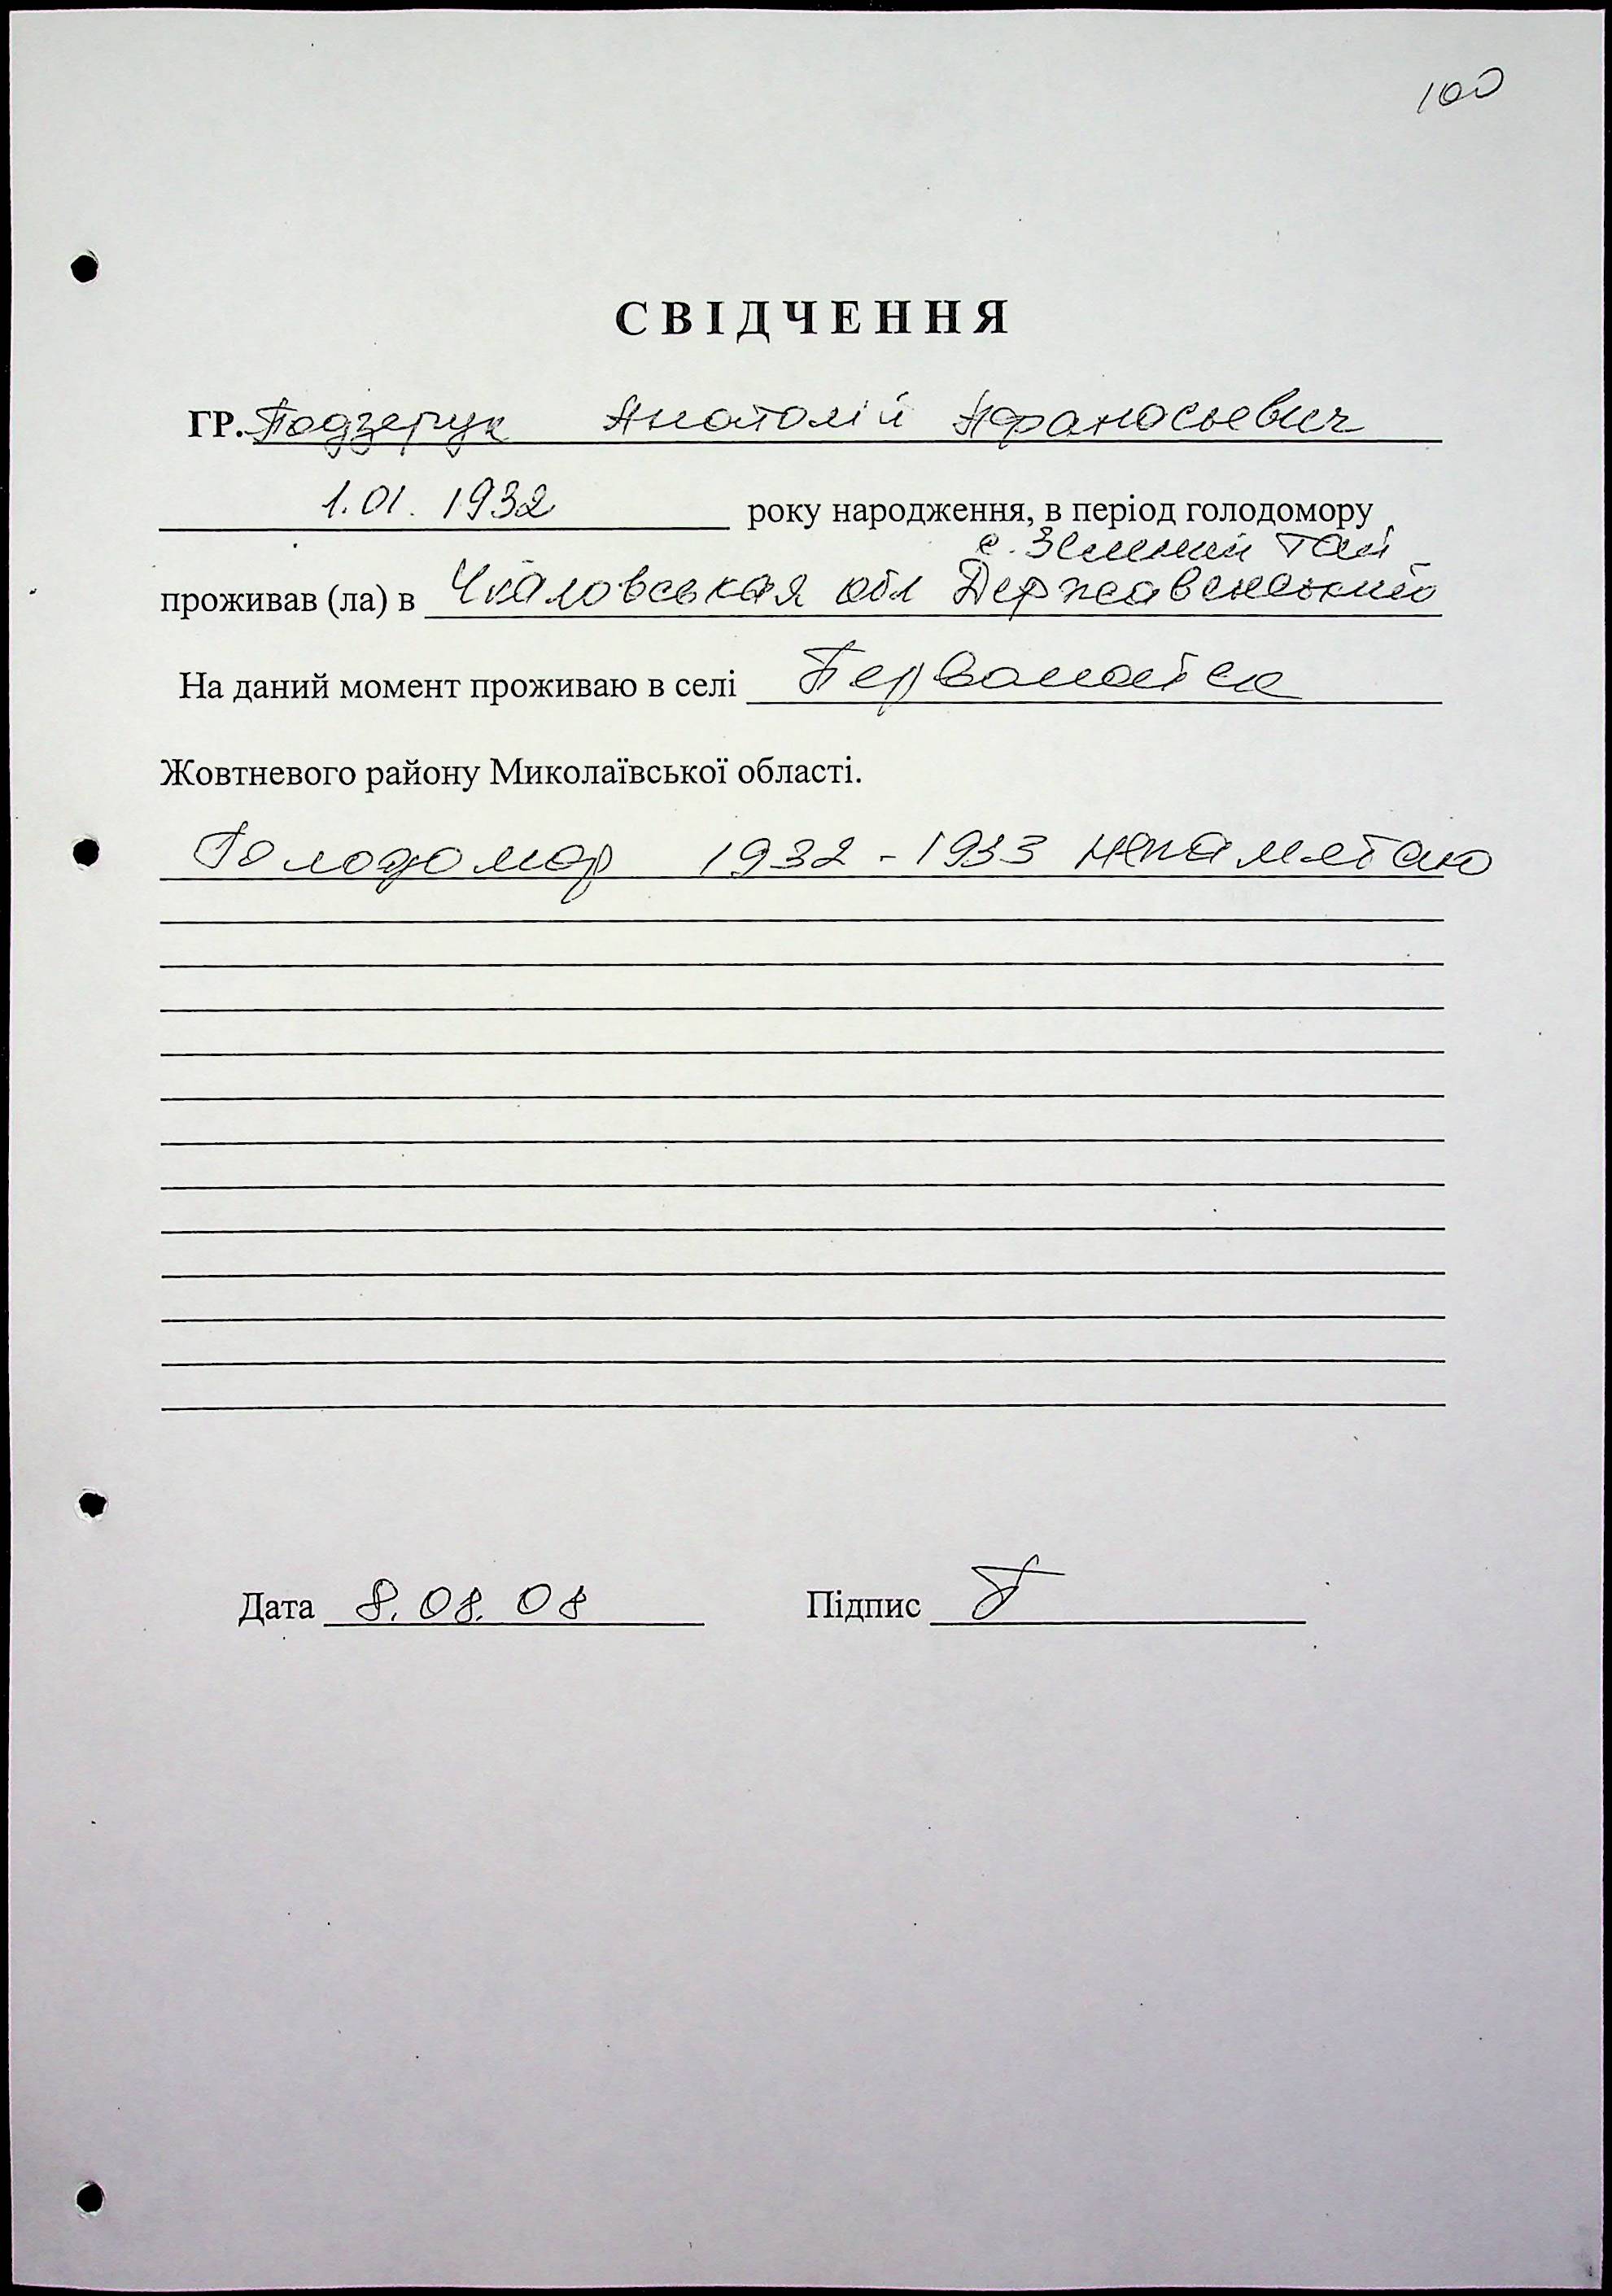 100
СВІДЧЕННЯ
ГР. Подзерук Анатолій Афанасьевич
1.01.1932 року народження, в період голодомору
с. Зелений Гай
проживав (ла) в Чкаловськая обл Державенський
На даний момент проживаю в селі Первомайск
Жовтневого району Миколаївської області.
Голодомор 1932-1933 непамятаю
Дата 8.08.08 Підпис